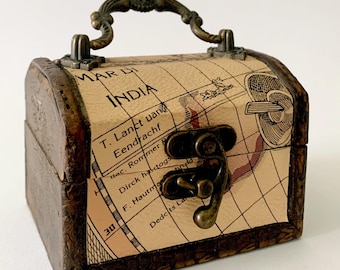 MAR DI
INDIA
T. Lanct uan
Eendracht
Rommer
Dirck hartog
F. Houtm
Dede
30